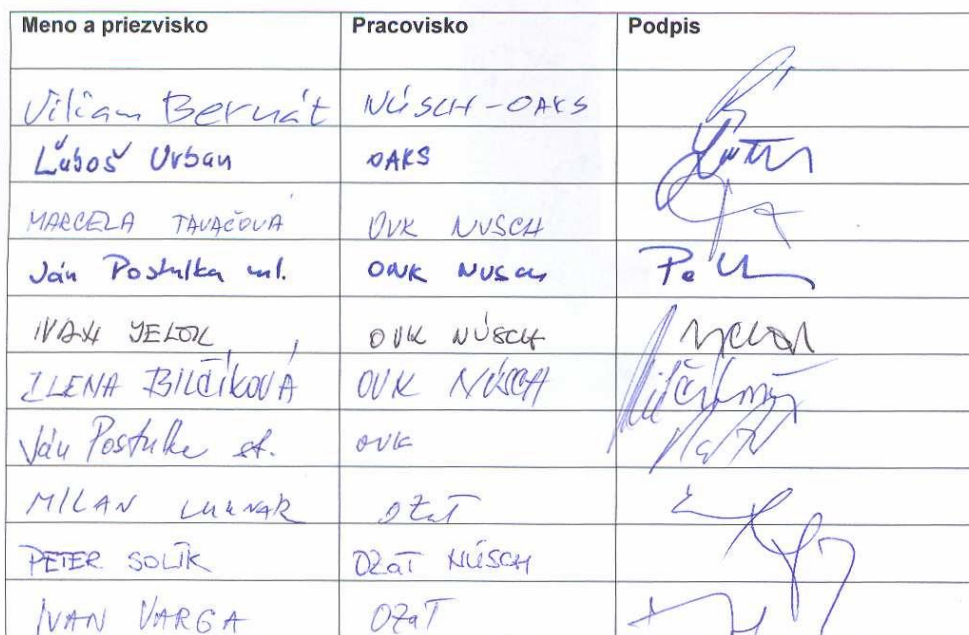 Meno a priezvisko Pracovisko Podpis
Viliam Bernát NÚSCH-OAKS
Ľuboš Urban OAKS
MARCELA TAVAČOVÁ OVK NUSCH
Ján Postulka ml. OVK NUSCH
IVAN JELOK OVK NÚSCH
ILENA BILČÍKOVÁ OVK NÚSCH
Ján Postulka st. OVK
MILAN LUKNAR OŽaT
PETER SOLÍK OŽaT NÚSCH
IVAN VARGA OŽaT